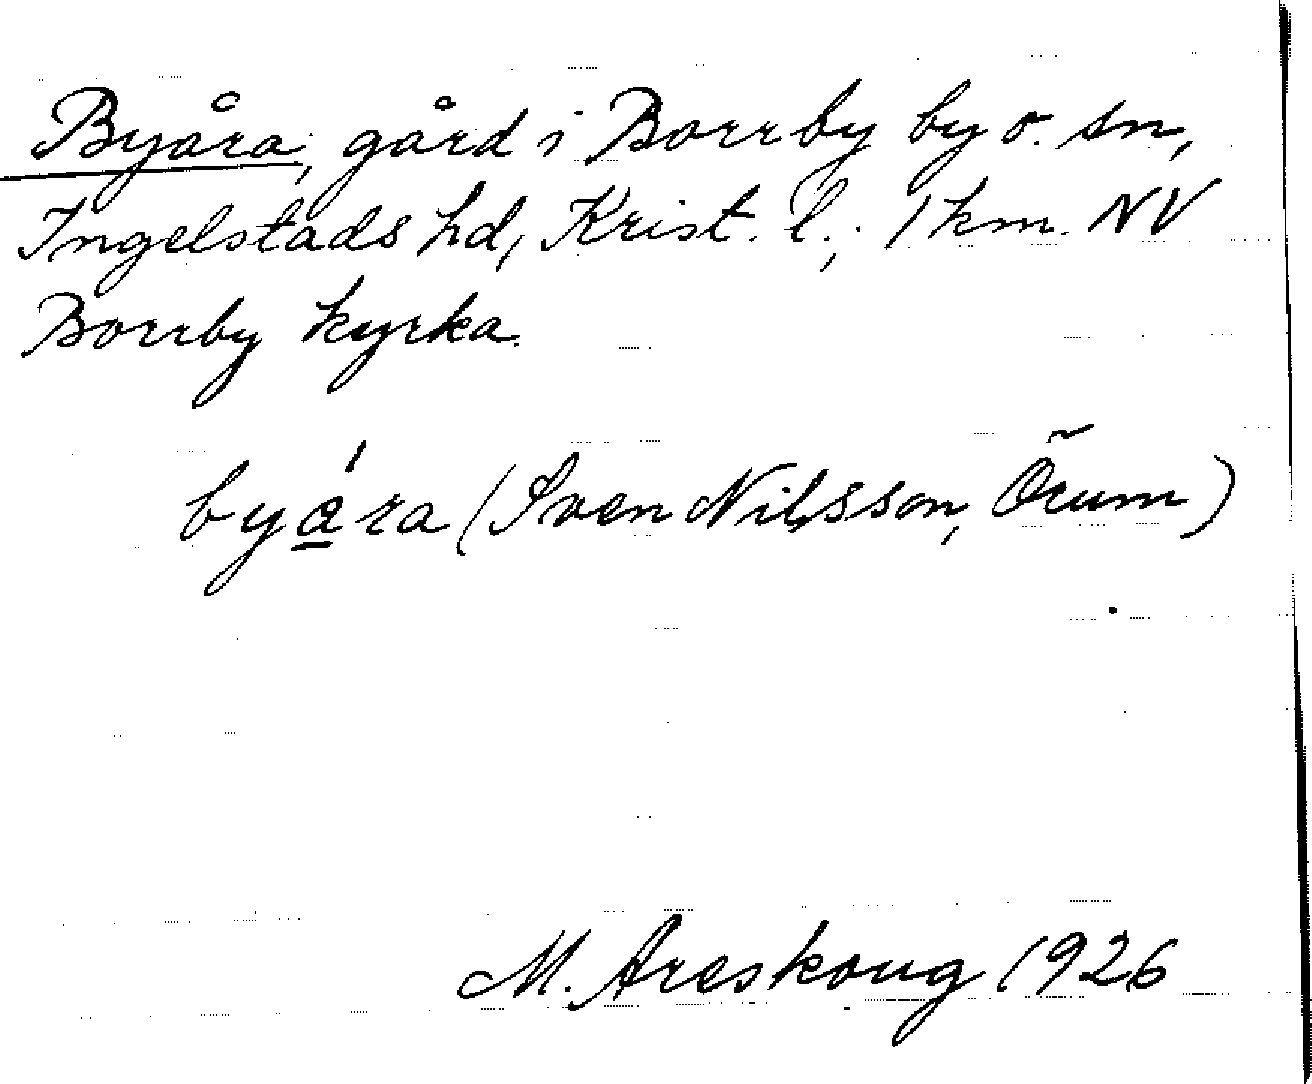 Byåra, gård i Borrby by o. sn,
Ingelstads hd, Krist. l.; 1 km. NV
Borrby kyrka.
byá̱ra (Sven Nilsson, Örum)
M. Areskoug 1926